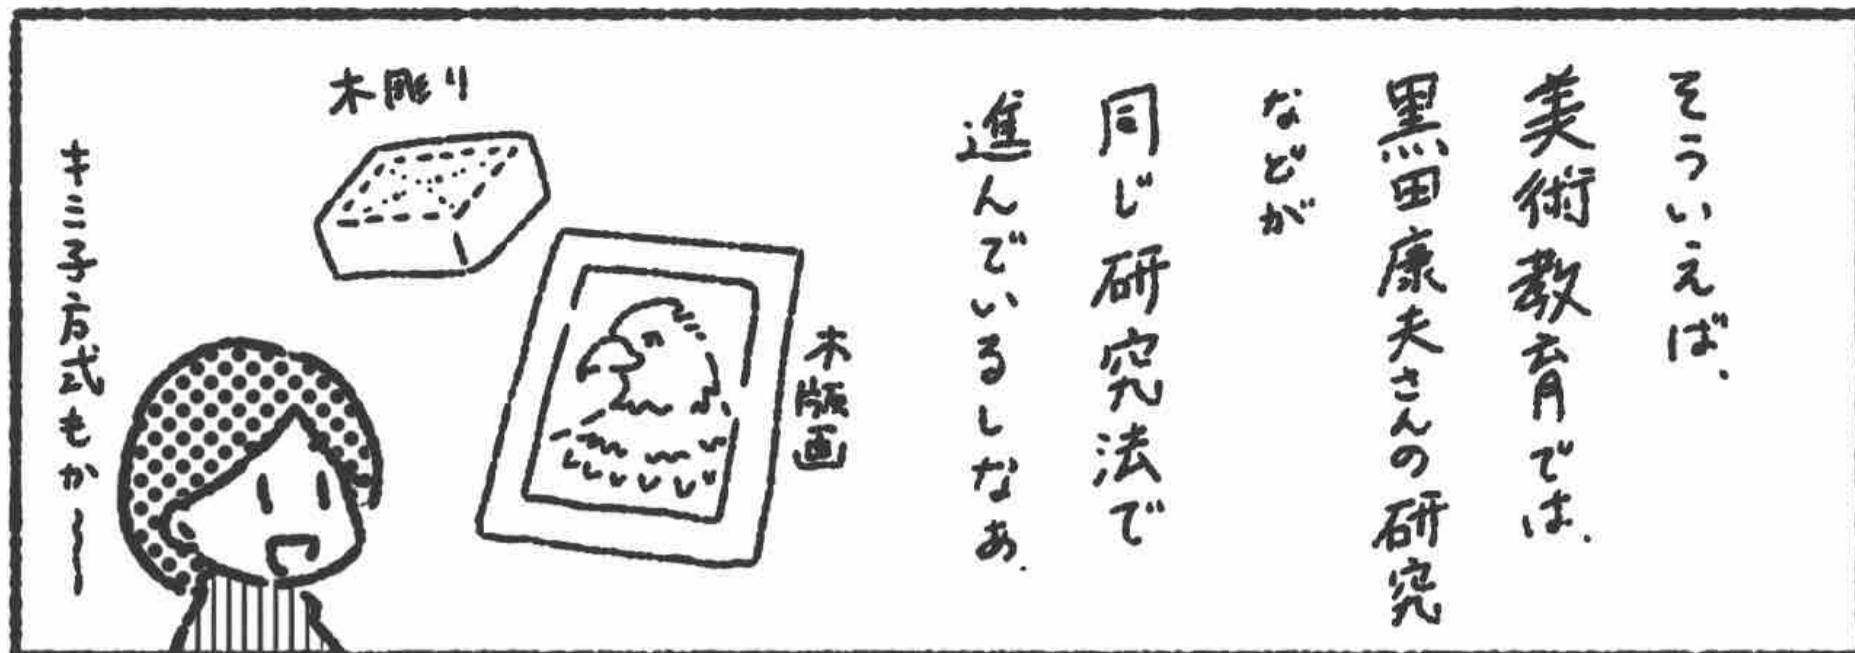 そういえば、
美術教育では、
黒田康夫さんの研究
などが
同じ研究法で
進んでいるしなぁ.
木版画
木彫り
キミ子方式もか〜